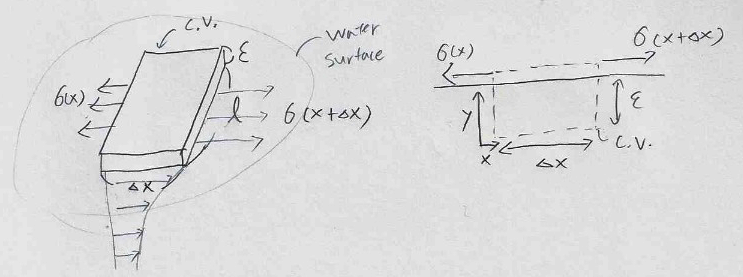 C.V.
ε
water
surface
6(x)
l
6(x+Δx)
Δx
6(x)
6(x+Δx)
y
ε
x
Δx
C.V.